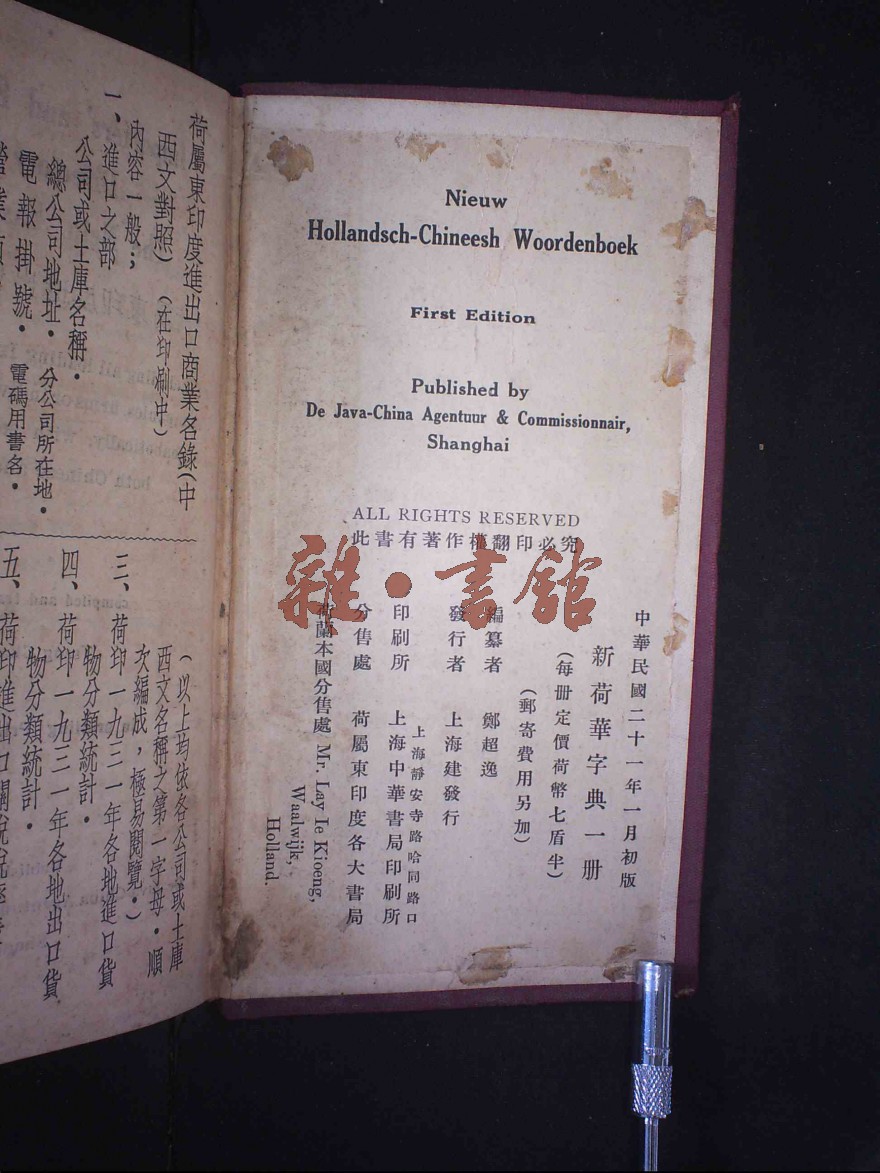 Nieuw
Hollandsch-Chineesh Woordenboek
First Edition
Published by
De Java-China Agentuur & Commissionnair,
Shanghai
ALL RIGHTS RESERVED
此書有著作權翻印必究
中華民國二十一年一月初版
新荷華字典一册
(每册定價荷幣七盾半)
(郵寄費用另加)
編纂者 鄭超逸
發行者 上海建發行
上海靜安寺路哈同路口
印刷所 上海中華書局印刷所
分售處 荷屬東印度各大書局
荷蘭本國分售處 Mr. Lay Ie Kioeng,
Waalwijk,
Holland.
雜·書館
荷屬東印度進出口商業名錄(中
西文對照) (在印刷中)
內容一般;
一、進口之部
公司或土庫名稱.
總公司地址. 分公司所在地.
電報掛號. 電碼用書名.
(以上均依各公司或土庫
西文名稱之第一字母.順
次編成,極易閱覽.)
三、荷印一九三一年各地進口貨
物分類統計.
四、荷印一九三一年各地出口貨
物分類統計.
五、荷印進出口關稅